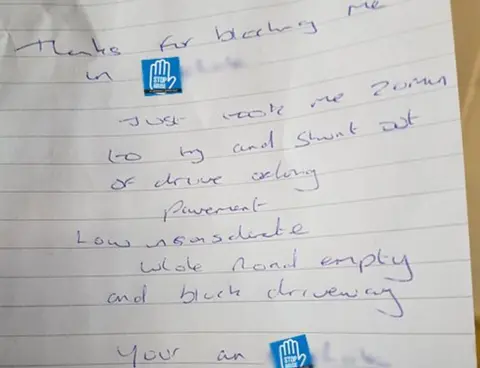 Thanks for blocking me
in
STOP
Just took me 20min
to try and shunt out
or drive along
pavement
whole road empty
and block driveway
Your an
STOP